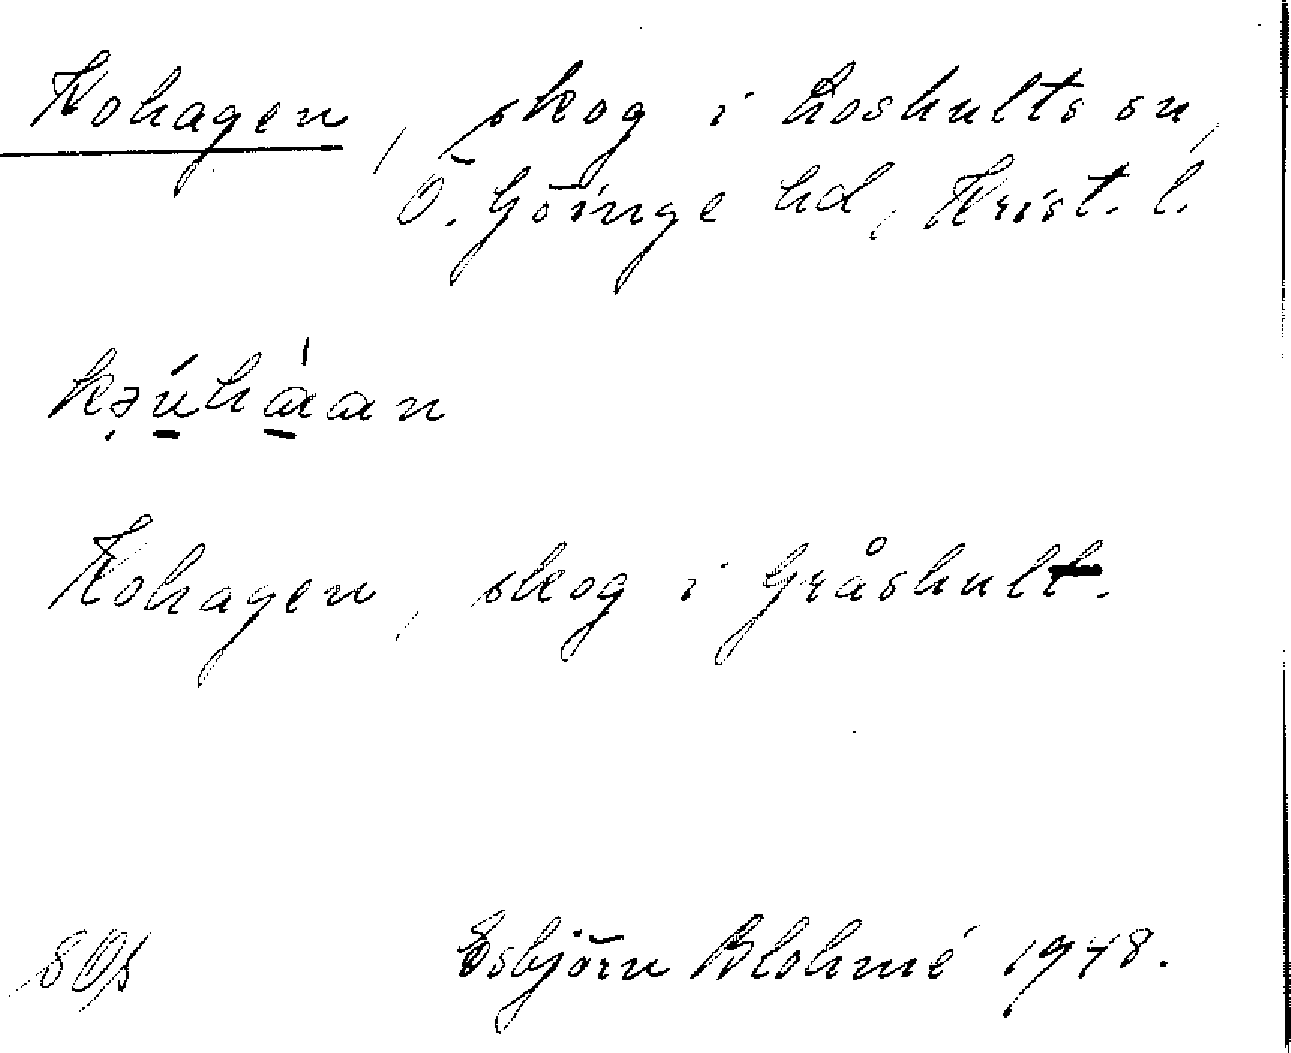 Kohagen, skog i Loshults sn,
Ö. Göinge hd, Krist. l.
kə̣úhɑ́ɑn
Kohagen, skog i Gråshult.
Esbjörn Blohmé 1948.